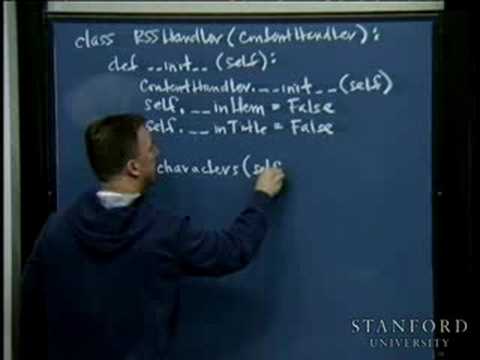 class RSSHandler(ContentHandler):
def __init__(self):
ContentHandler.__init__(self)
self.__inItem = False
self.__inTitle = False
characters(self
STANFORD
UNIVERSITY